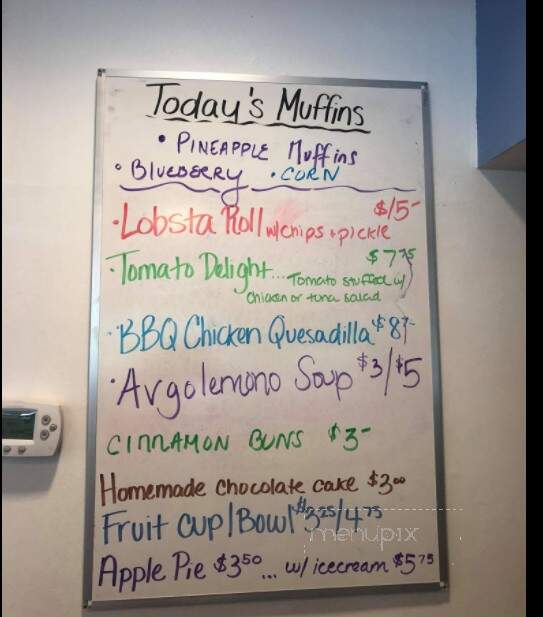 Today's Muffins
• PINEAPPLE Muffins
• BLUEBERRY • CORN
• Lobsta Roll w/chips + pickle $15-
• Tomato Delight... Tomato stuffed w/ $7.75
Chicken or tuna salad
• BBQ Chicken Quesadilla $8
• Avgolemono Soup $3/$5
CINNAMON BUNS $3-
Homemade Chocolate cake $3.00
Fruit Cup/Bowl $3.25/4.75
menupix
Apple Pie $3.50... w/ icecream $5.75